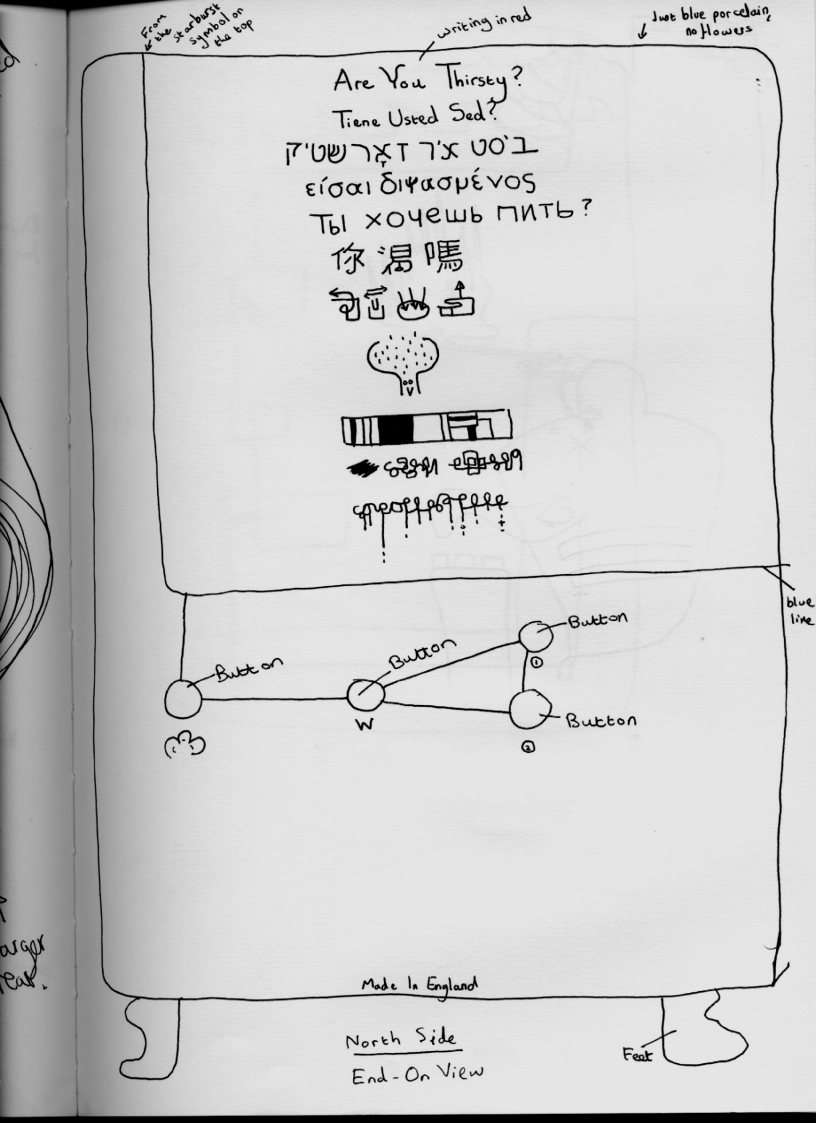 From
the starburst
symbol on
the top
writing in red
Just blue porcelain,
no flowers
Are You Thirsty?
Tiene Usted Sed?
ביסט איר דאָרשטיק
είσαι διψασμένος
Ты хочешь пить?
你渴嗎
blue
line
Button
Button
Button
①
W
Button
②
Made In England
North Side
Feet
End-On View